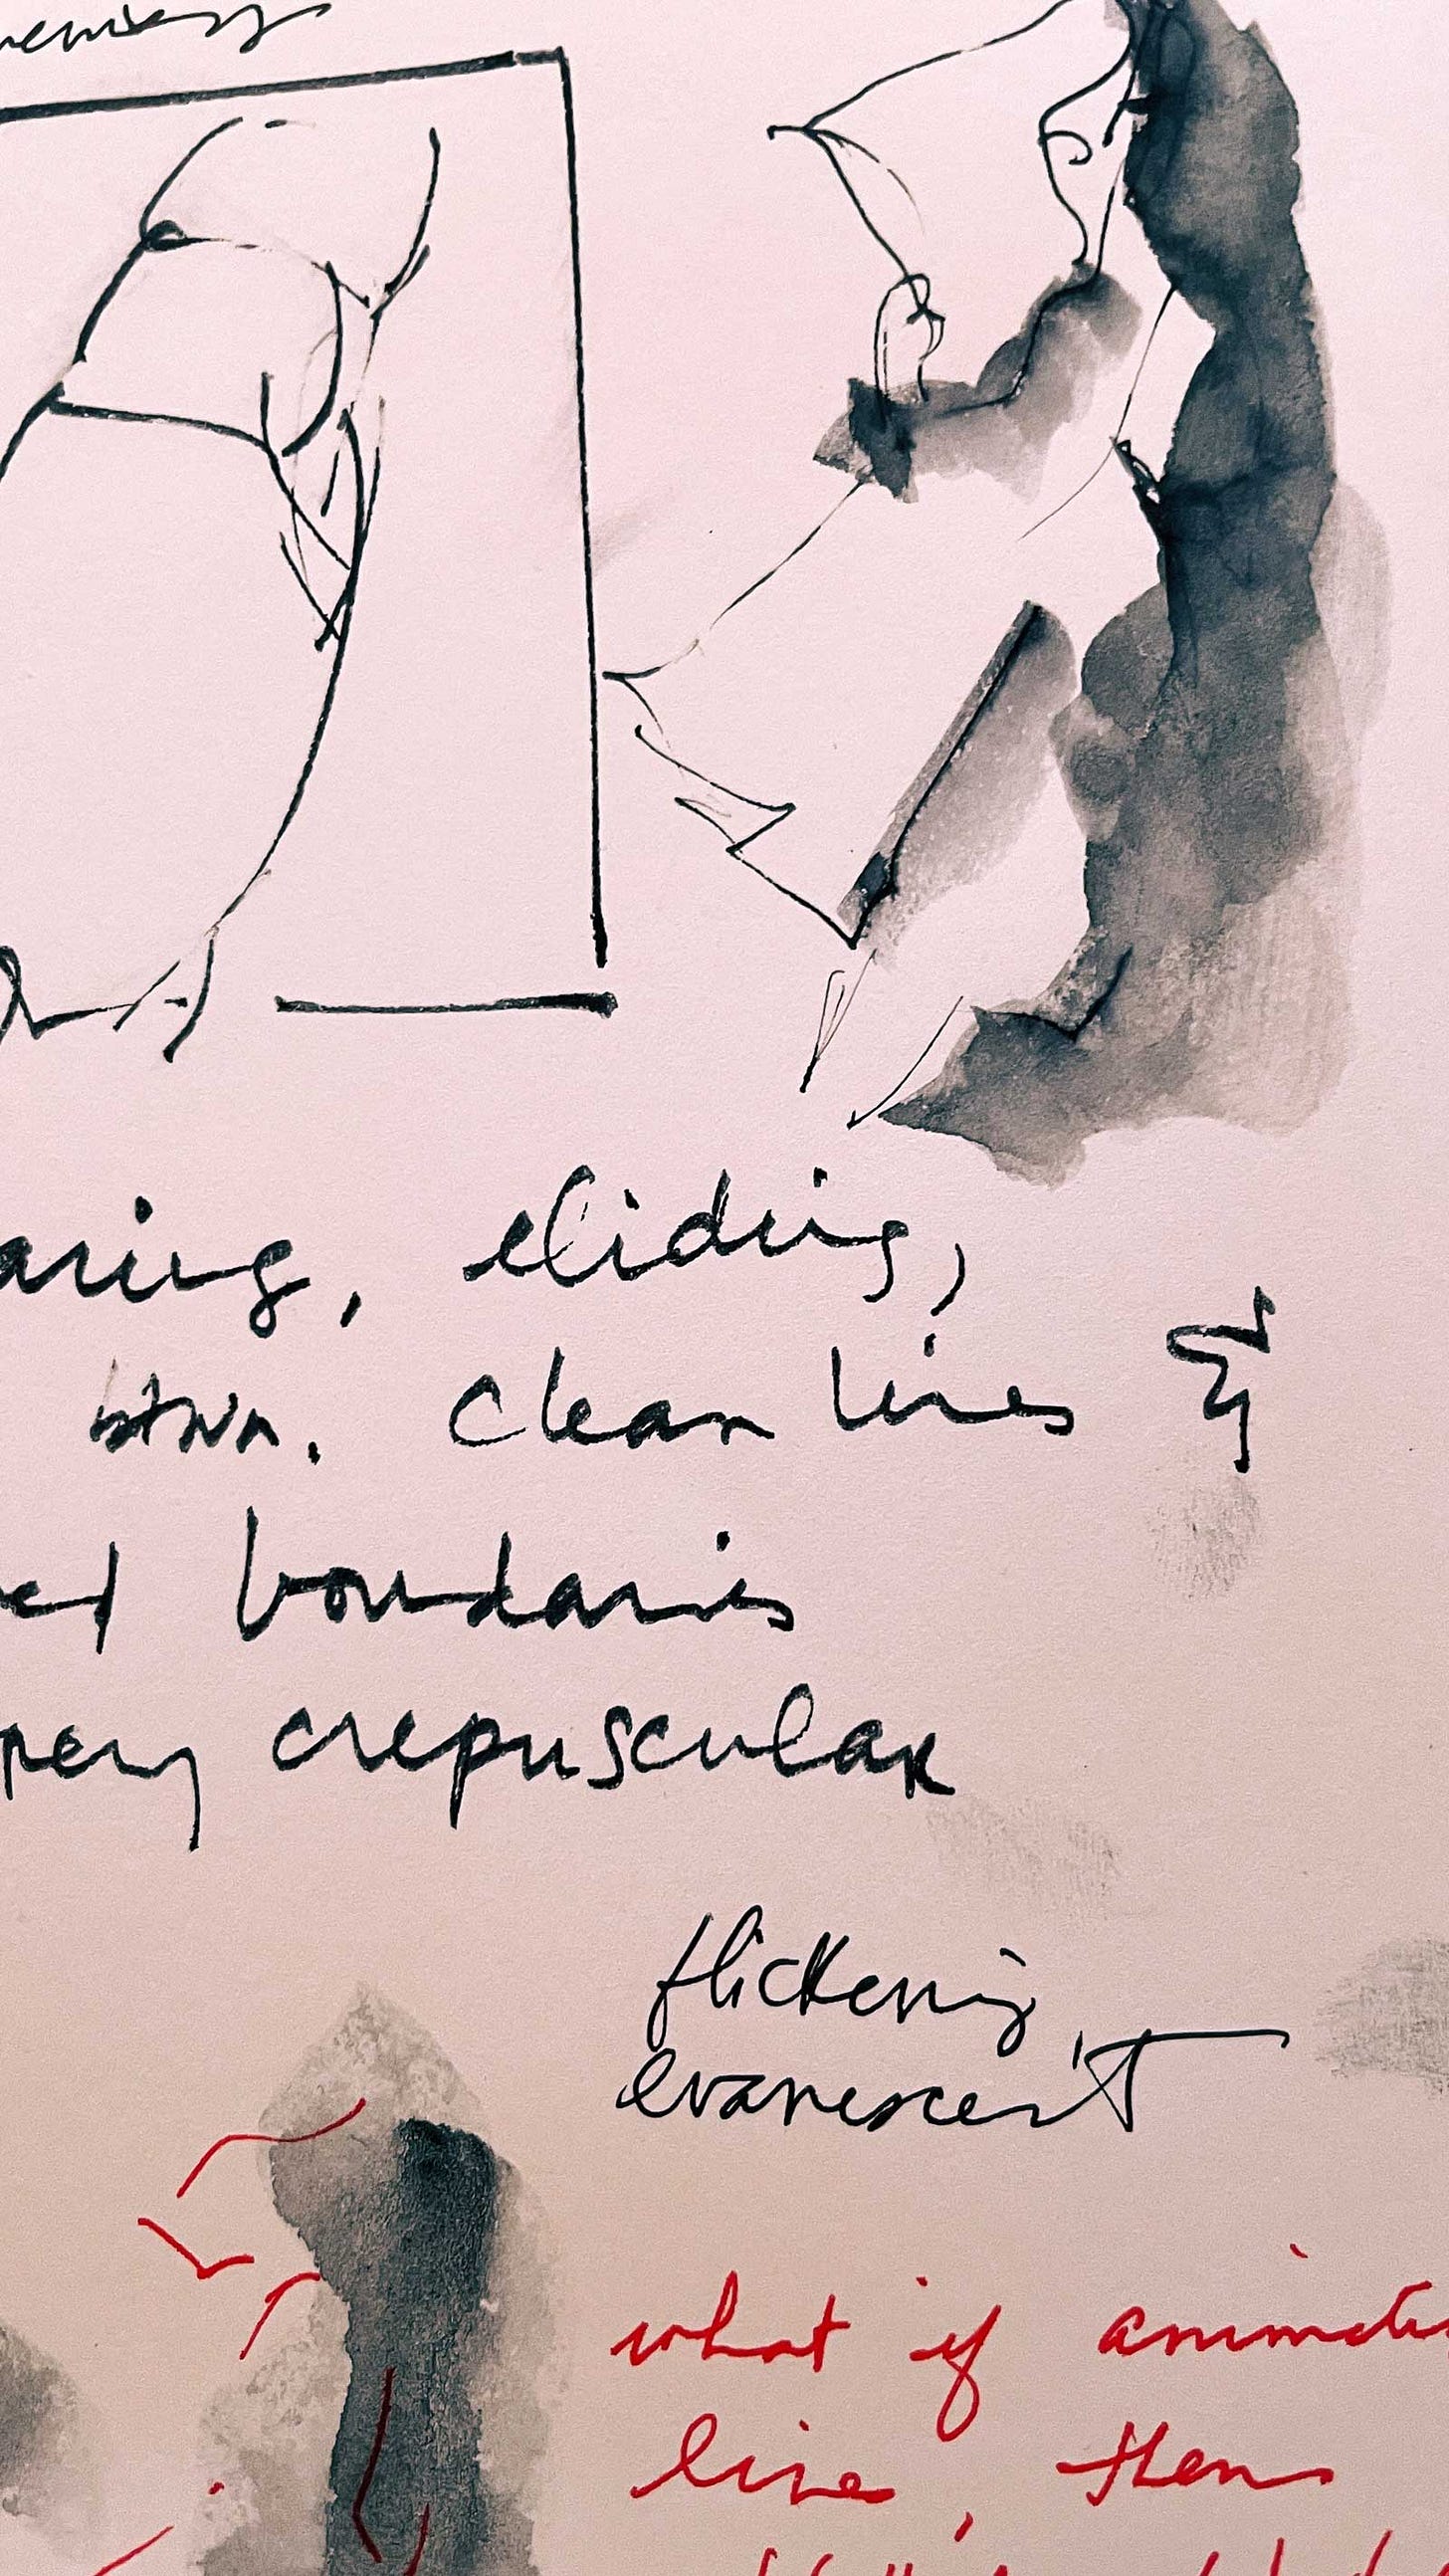 aring, eliding,
btwn. clean lines &
ed boundaries
pery crepuscular
flickering,
evanescent
what if animate
line, then